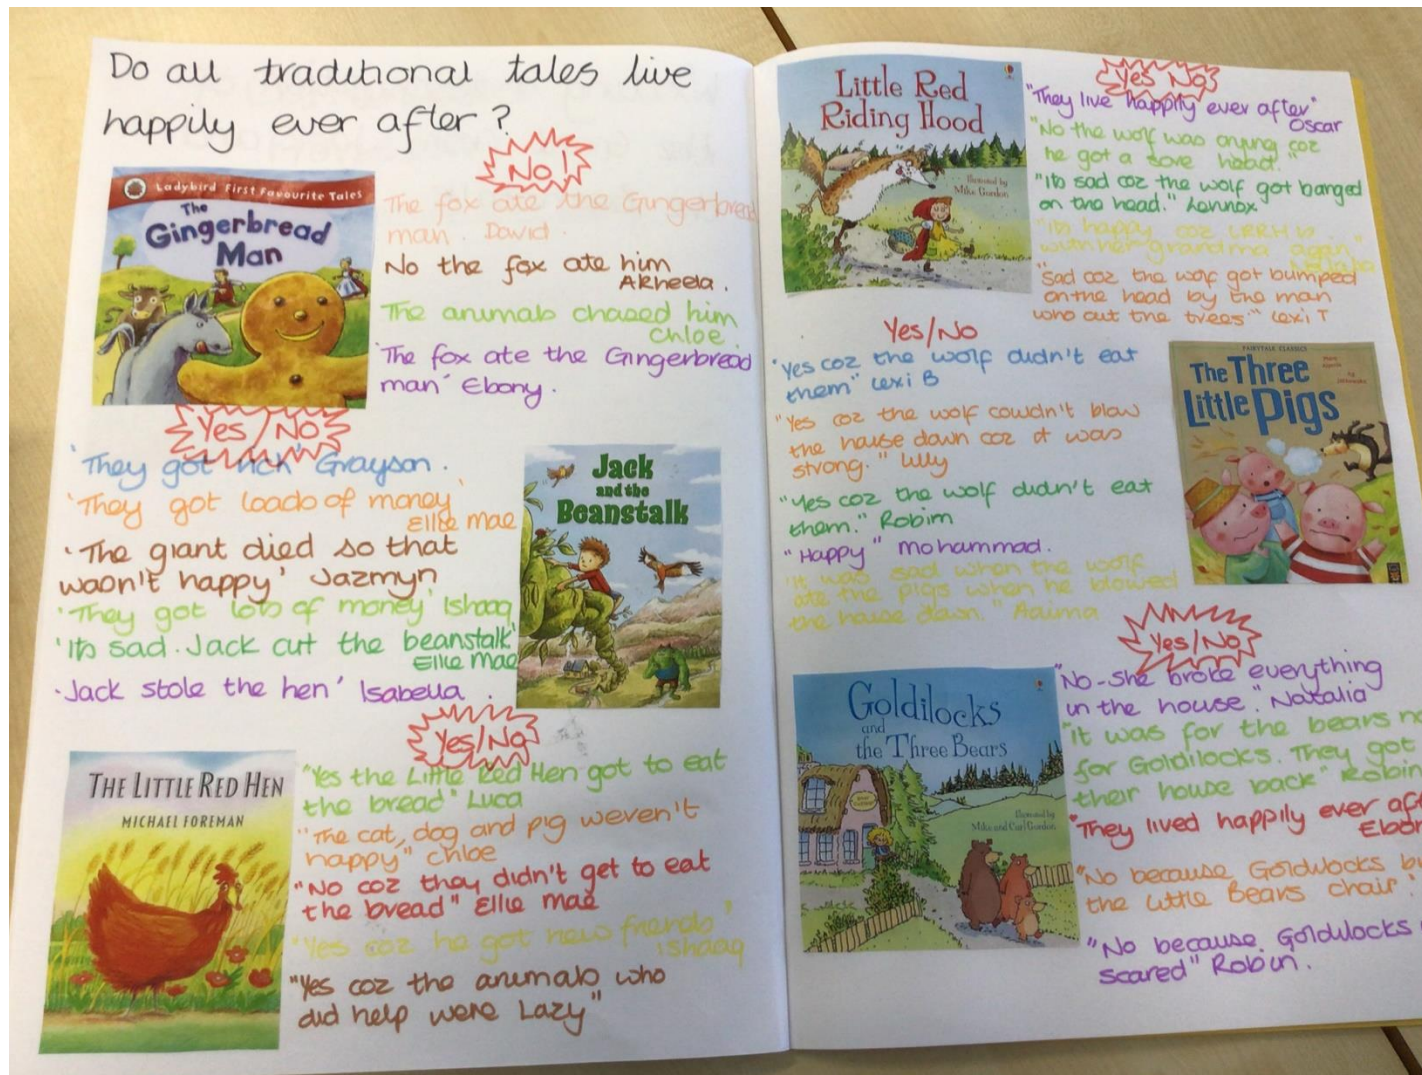 Do all traditional tales live
happily ever after?
No!
Ladybird First Favourite Tales
The
Gingerbread
Man
The fox ate the Gingerbread
man. David.
No the fox ate him
Arheela.
The animals chased him
Chloe
'The fox ate the Gingerbread
man' Ebony.
Yes/No
'They got rich' Grayson.
'They got loads of money'
Ellie Mae
'The giant died so that
wasn't happy' Jazmyn
'They got lots of money' Ishaaq
'Its sad. Jack cut the beanstalk'
Ellie Mae
'Jack stole the hen' Isabella.
Jack
and the
Beanstalk
Yes/No
THE LITTLE RED HEN
MICHAEL FOREMAN
"Yes the Little Red Hen got to eat
the bread" Luca
"The cat, dog and pig weren't
happy" Chloe
"No coz they didn't get to eat
the bread" Ellie Mae
"Yes coz he got new friends"
Ishaaq
"Yes coz the animals who
did help were Lazy"
Little Red
Riding Hood
Illustrated by
Mike Gordon
Yes No
"They live happily ever after"
Oscar
"No the wolf was crying coz
he got a sore head."
"its sad coz the wolf got banged
on the head." Lennox
"its happy coz LRRH is
with her grandma again"
"Sad coz the wolf got bumped
on the head by the man
who cut the trees" Lexi T
Yes/No
"Yes coz the wolf didn't eat
them" Lexi B
"Yes coz the wolf couldn't blow
the house down coz it was
strong." Lilly
"Yes coz the wolf didn't eat
them." Robim
"Happy" Mohammad.
"It was sad when the wolf
ate the pigs when he blowed
the house down." Aaima
FAIRYTALE CLASSICS
The Three
Little Pigs
Yes/No
Goldilocks
and
the Three Bears
Illustrated by
Mike and Carl Gordon
"No - she broke everything
in the house". Natalia
"it was for the bears
for Goldilocks. They got
their house back" Robin
"They lived happily ever
"No because Goldilocks
the Little Bears chair".
"No because Goldilocks
scared" Robin.